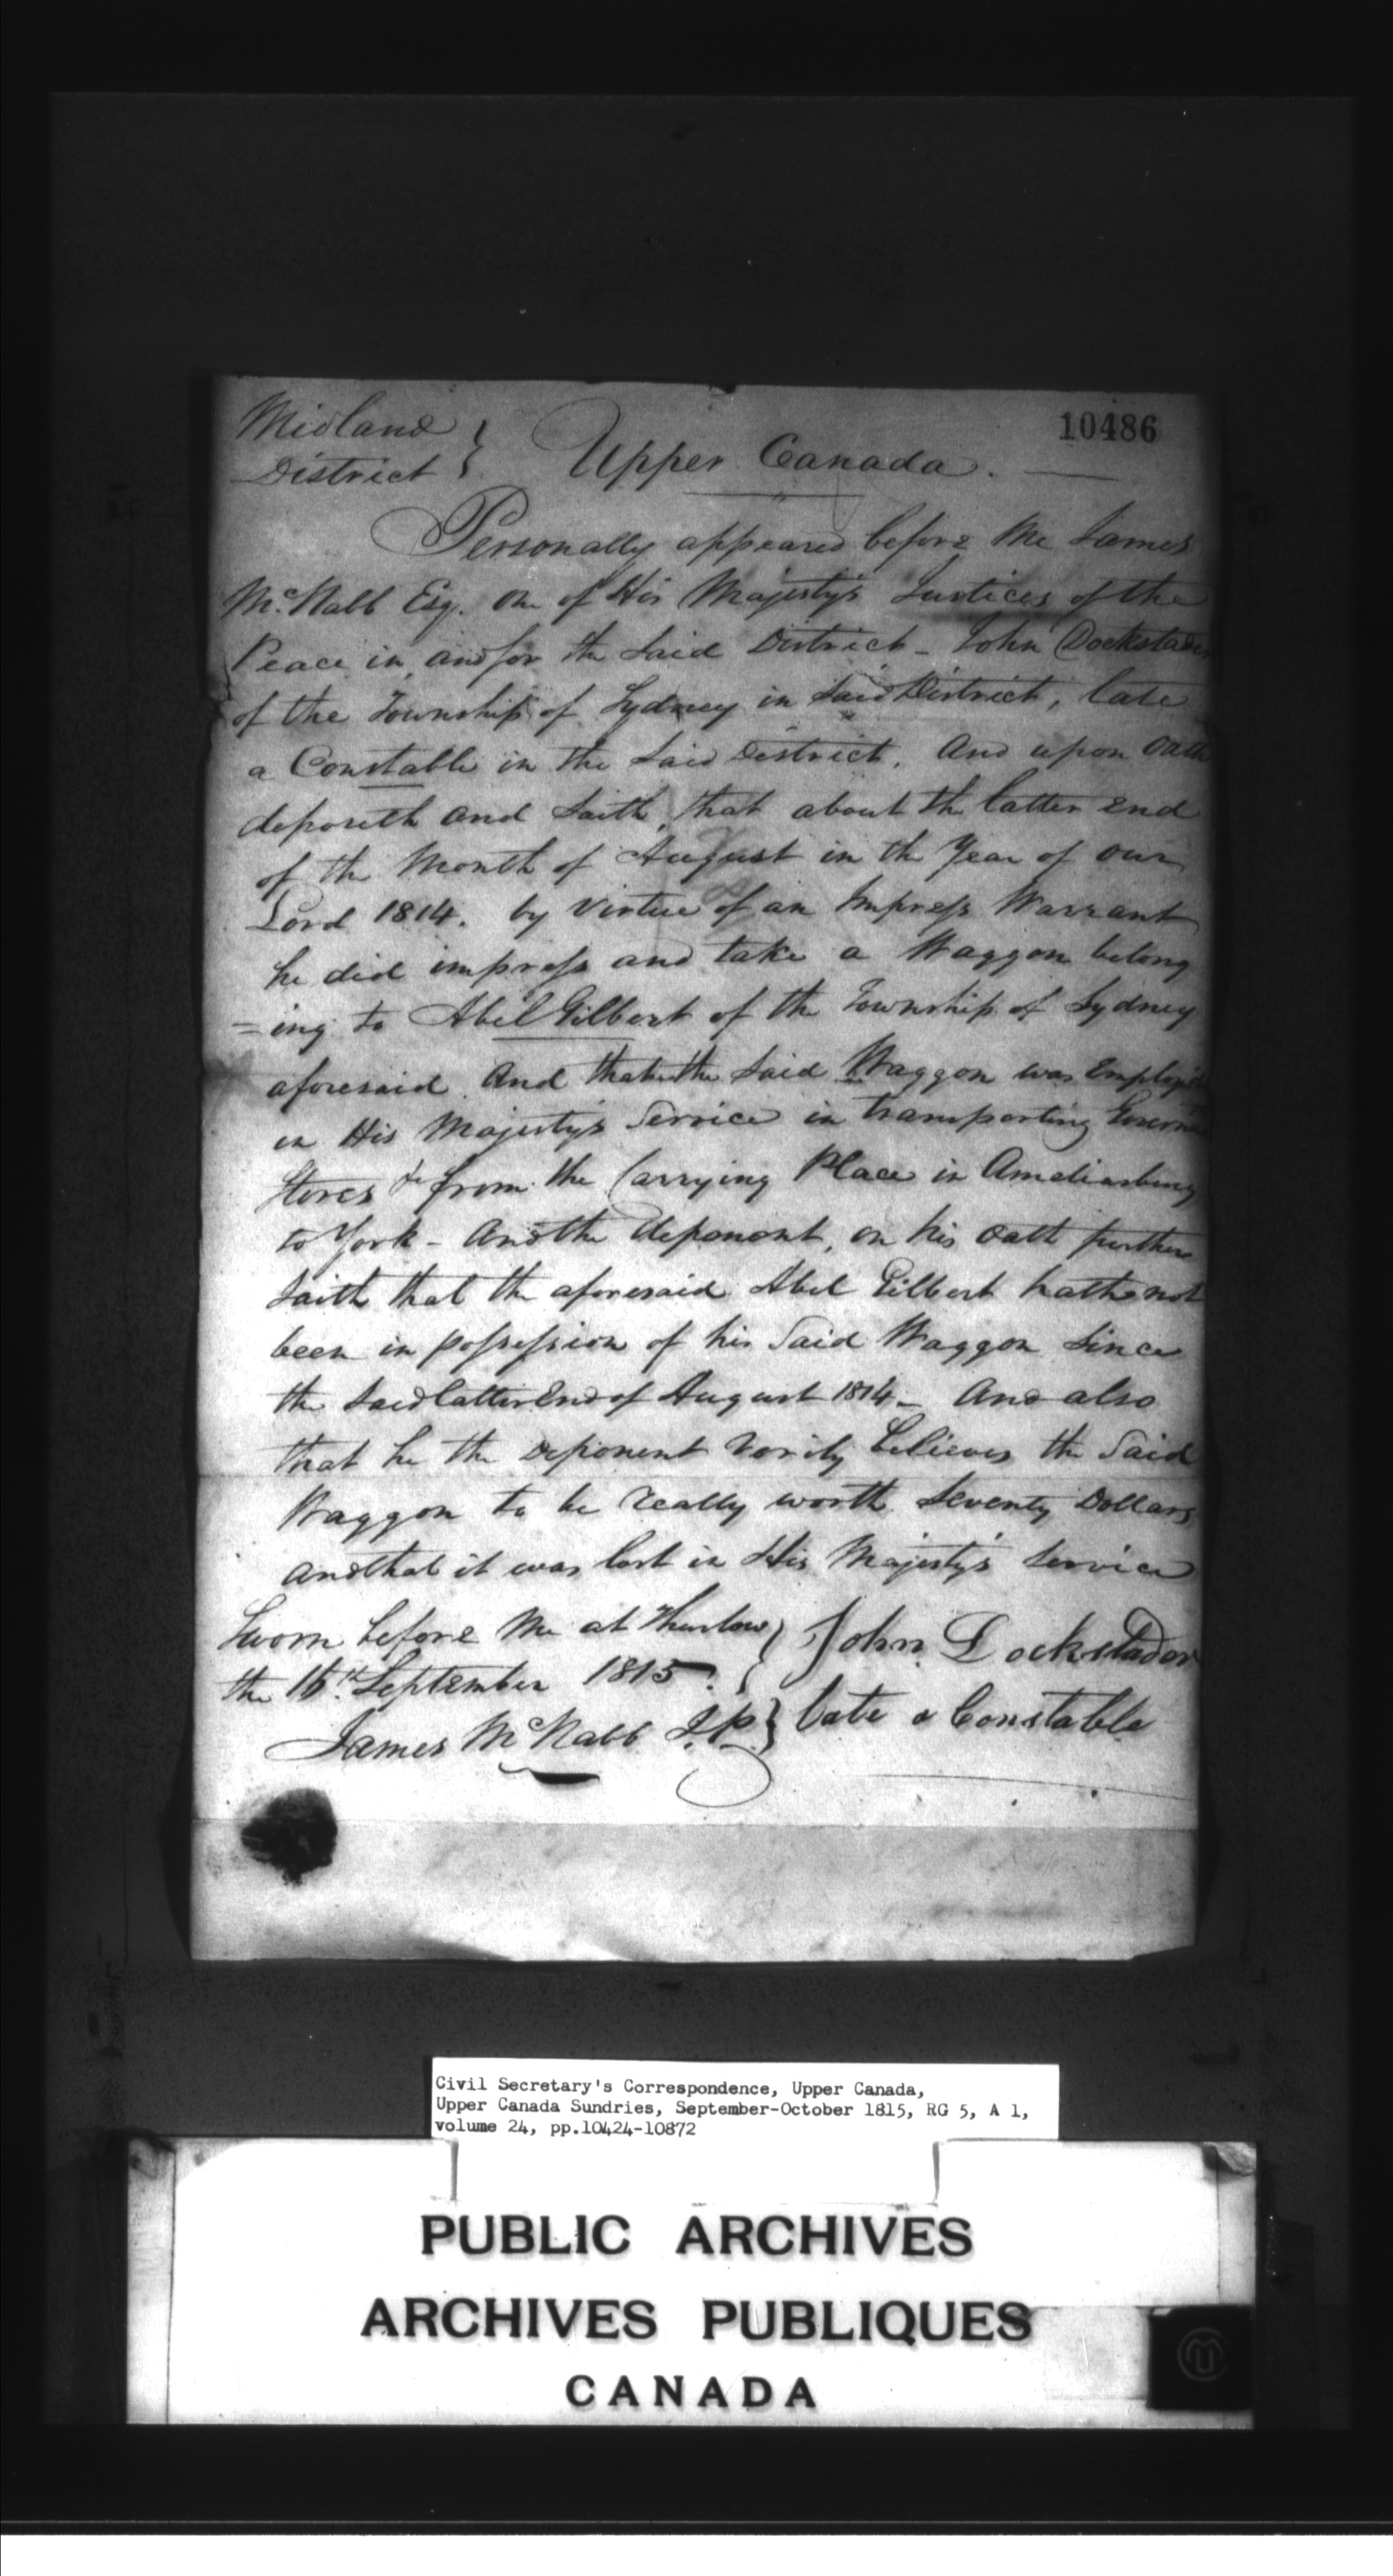 Midland
District } Upper Canada.
10486
Personally appeared before Me James
McNabb Esq. One of His Majesty's Justices of the
Peace in, and for the Said District - John Dockstader
of the Township of Sydney in Said District, late
a Constable in the Said District. And upon Oath
deposeth and Saith, that about the latter End
of the Month of August in the Year of our
Lord 1814. by Virtue of an Impress Warrant
he did impress and take a Waggon belong
=ing to Abel Gilbert of the Township of Sydney
aforesaid. And that the Said Waggon was Employd
in His Majesty's Service in transporting
Stores &c from the Carrying Place in Ameliasburg
to York - And the deponent, on his Oath further
Saith that the aforesaid Abel Gilbert hath not
been in possession of his Said Waggon Since
the Said latter End of August 1814 - And also
that he the Deponent Verily believes the Said
Waggon to be really worth Seventy Dollars
and that it was lost in His Majesty's Service
Sworn before Me at Thurlow } John Dockstader
the September 1815. }
James McNabb J.P. } late a Constable
Civil Secretary's Correspondence, Upper Canada,
Upper Canada Sundries, September-October 1815, RG 5, A 1,
volume 24, pp.10424-10872
PUBLIC ARCHIVES
ARCHIVES PUBLIQUES
CANADA